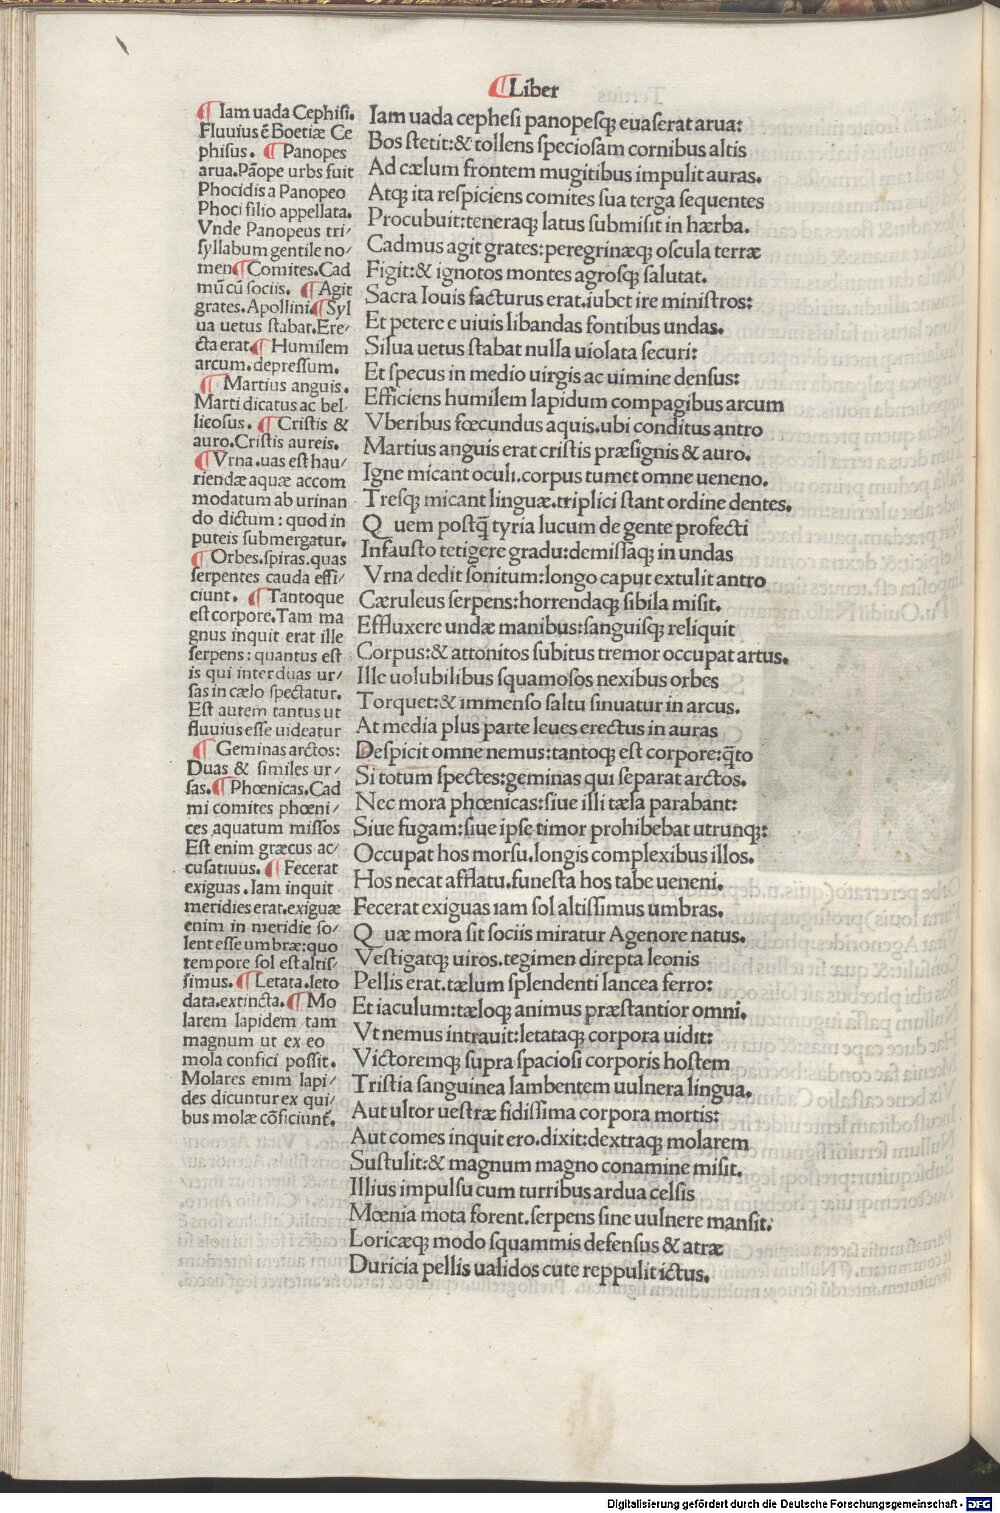 ¶Liber
¶Iam uada Cephisi.
Fluuius ē Boetiæ Ce
phisus. ¶Panopes
arua.Pāope urbs fuit
Phocidis a Panopeo
Phoci filio appellata.
Vnde Panopeus tri/
syllabum gentile no/
men¶Comites.Cad
mū cū sociis. ¶Agit
grates.Apollini¶Syl
ua uetus stabat.Ere/
cta erat¶Humilem
arcum.depressum.
¶Martius anguis.
Marti dicatus ac bel
licosus. ¶Cristis &
auro.Cristis aureis.
¶Vrna.uas est hau/
riendæ aquæ accom
modatum ab urinan
do dictum: quod in
puteis submergatur.
¶Orbes.spiras.quas
serpentes cauda effi/
ciunt. ¶Tantoque
est corpore.Tam ma
gnus inquit erat ille
serpens: quantus est
is qui inter duas ur/
sas in cælo spectatur.
Est autem tantus ut
fluuius esse uideatur
¶Geminas arctos:
Duas & similes ur/
sas.¶Phœnicas.Cad
mi comites phœni/
ces aquatum missos
Est enim græcus ac/
cusatiuus. ¶Fecerat
exiguas.Iam inquit
meridies erat.exiguæ
enim in meridie so/
lent esse umbræ:quo
tempore sol est altis/
simus.¶Letata.leto
data.extincta.¶Mo
larem lapidem tam
magnum ut ex eo
mola confici possit.
Molares enim lapi/
des dicuntur ex qui/
bus molæ cōficiunt̄.
Iam uada cephesi panopesq; euaserat arua:
Bos stetit:& tollens speciosam cornibus altis
Ad cælum frontem mugitibus impulit auras.
Atq; ita respiciens comites sua terga sequentes
Procubuit:teneraq; latus submisit in hærba.
Cadmus agit grates:peregrinæq; oscula terræ
Figit:& ignotos montes agrosq; salutat.
Sacra Iouis facturus erat.iubet ire ministros:
Et petere e uiuis libandas fontibus undas.
Silua uetus stabat nulla uiolata securi:
Et specus in medio uirgis ac uimine densus:
Efficiens humilem lapidum compagibus arcum
Vberibus fœcundus aquis.ubi conditus antro
Martius anguis erat cristis præsignis & auro.
Igne micant oculi.corpus tumet omne ueneno.
Tresq; micant linguæ.triplici stant ordine dentes.
Q uem postq̄ tyria lucum de gente profecti
Infausto tetigere gradu:demissaq; in undas
Vrna dedit sonitum:longo caput extulit antro
Cæruleus serpens:horrendaq; sibila misit.
Effluxere undæ manibus:sanguisq; reliquit
Corpus:& attonitos subitus tremor occupat artus.
Ille uolubilibus squamosos nexibus orbes
Torquet:& immenso saltu sinuatur in arcus.
At media plus parte leues erectus in auras
Despicit omne nemus:tantoq; est corpore:q̄to
Si totum spectes:geminas qui separat arctos.
Nec mora phœnicas:siue illi tæla parabant:
Siue fugam:siue ipse timor prohibebat utrunq;:
Occupat hos morsu.longis complexibus illos.
Hos necat afflatu.funesta hos tabe ueneni.
Fecerat exiguas iam sol altissimus umbras.
Q uæ mora sit sociis miratur Agenore natus.
Vestigatq; uiros.tegimen direpta leonis
Pellis erat.tælum splendenti lancea ferro:
Et iaculum:tæloq; animus præstantior omni.
Vt nemus intrauit:letataq; corpora uidit:
Victoremq; supra spaciosi corporis hostem
Tristia sanguinea lambentem uulnera lingua.
Aut ultor uestræ fidissima corpora mortis:
Aut comes inquit ero.dixit:dextraq; molarem
Sustulit:& magnum magno conamine misit.
Illius impulsu cum turribus ardua celsis
Mœnia mota forent.serpens sine uulnere mansit.
Loricæq; modo squammis defensus & atræ
Duricia pellis ualidos cute reppulit ictus.
Digitalisierung gefördert durch die Deutsche Forschungsgemeinschaft - DFG